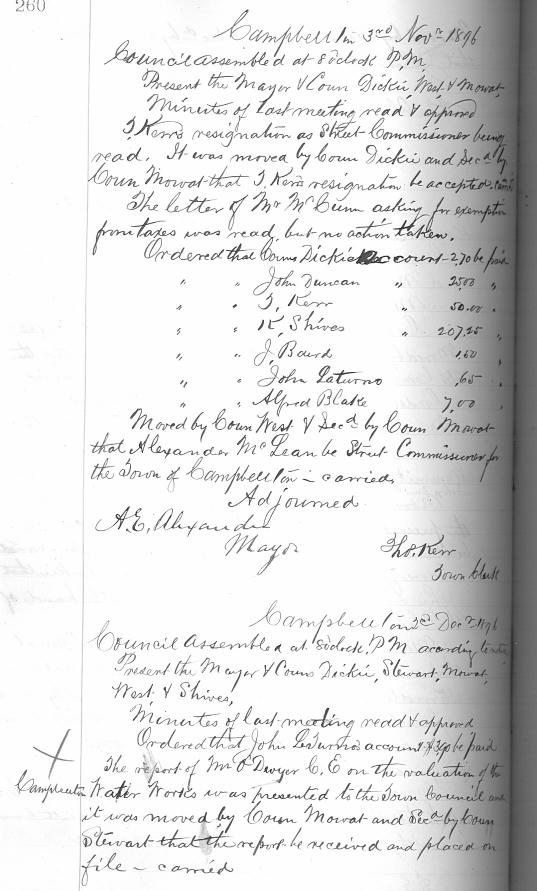 260
Campbellton 3rd Novr 1896
Council assembled at 8 oclock P.M.
Present the Mayor & Coun Dickie, West & Mowat
Minutes of last meeting read & approved
T. Kerr's resignation as Street Commissioner being
read. It was moved by Coun Dickie and Secd by
Coun Mowat that T. Kerrs resignation be accepted, carrd
The letter of Mr McCunn asking for exemption
from taxes was read, but no action taken.
Ordered that Couns Dickie account 2.70 be paid
" " John Duncan " 25.00 "
" " T. Kerr " 50.00 "
" " K Shives " 207.25 "
" " J. Baird 1.50 "
" " John Laturno .65 "
" " Alfred Blake 7.00 "
Moved by Coun West & Secd by Coun Mowat
that Alexander McLean be Street Commissioner for
the Town of Campbellton – carried,
Adjourned
A.E. Alexander
Mayor Thos. Kerr
Town Clerk
Campbellton 3rd Decr 1896
Council Assembled at 8 oclock, P M according to
Present the Mayor & Couns Dickie, Stewart, Mowat,
West & Shives,
Minutes of last meeting read & approved
Ordered that John LeTurno's account be paid
The report of Mr O'Dwyer C, E on the valuation of the
Campbellton Water Works was presented to the Town Council and
it was moved by Coun Mowat and Secd by Coun
Stewart that the report be received and placed on
file – carried